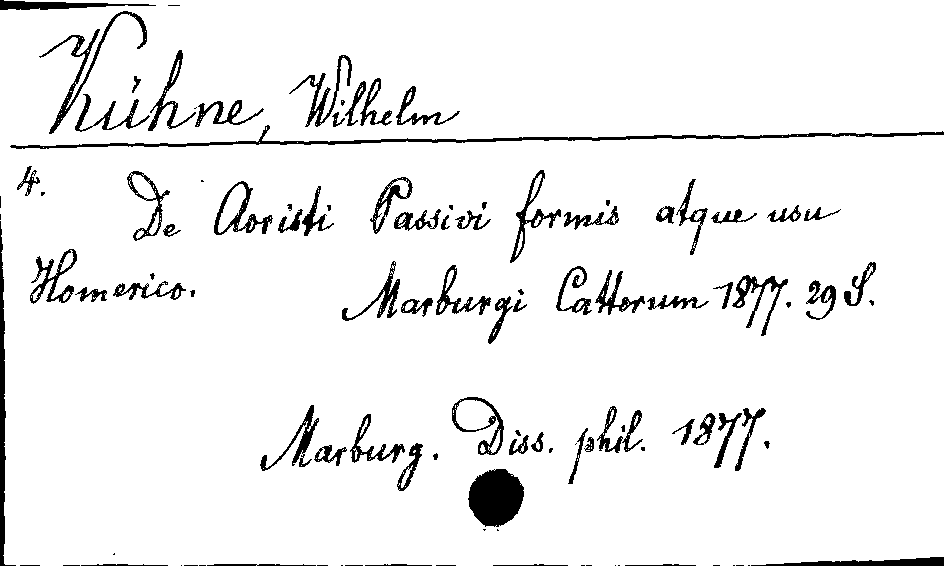 Kühne, Wilhelm
4.
De Aoristi Passivi formis atque usu
Homerico. Marburgi Cattorum 1877. 29 S.
Marburg. Diss. phil. 1877.